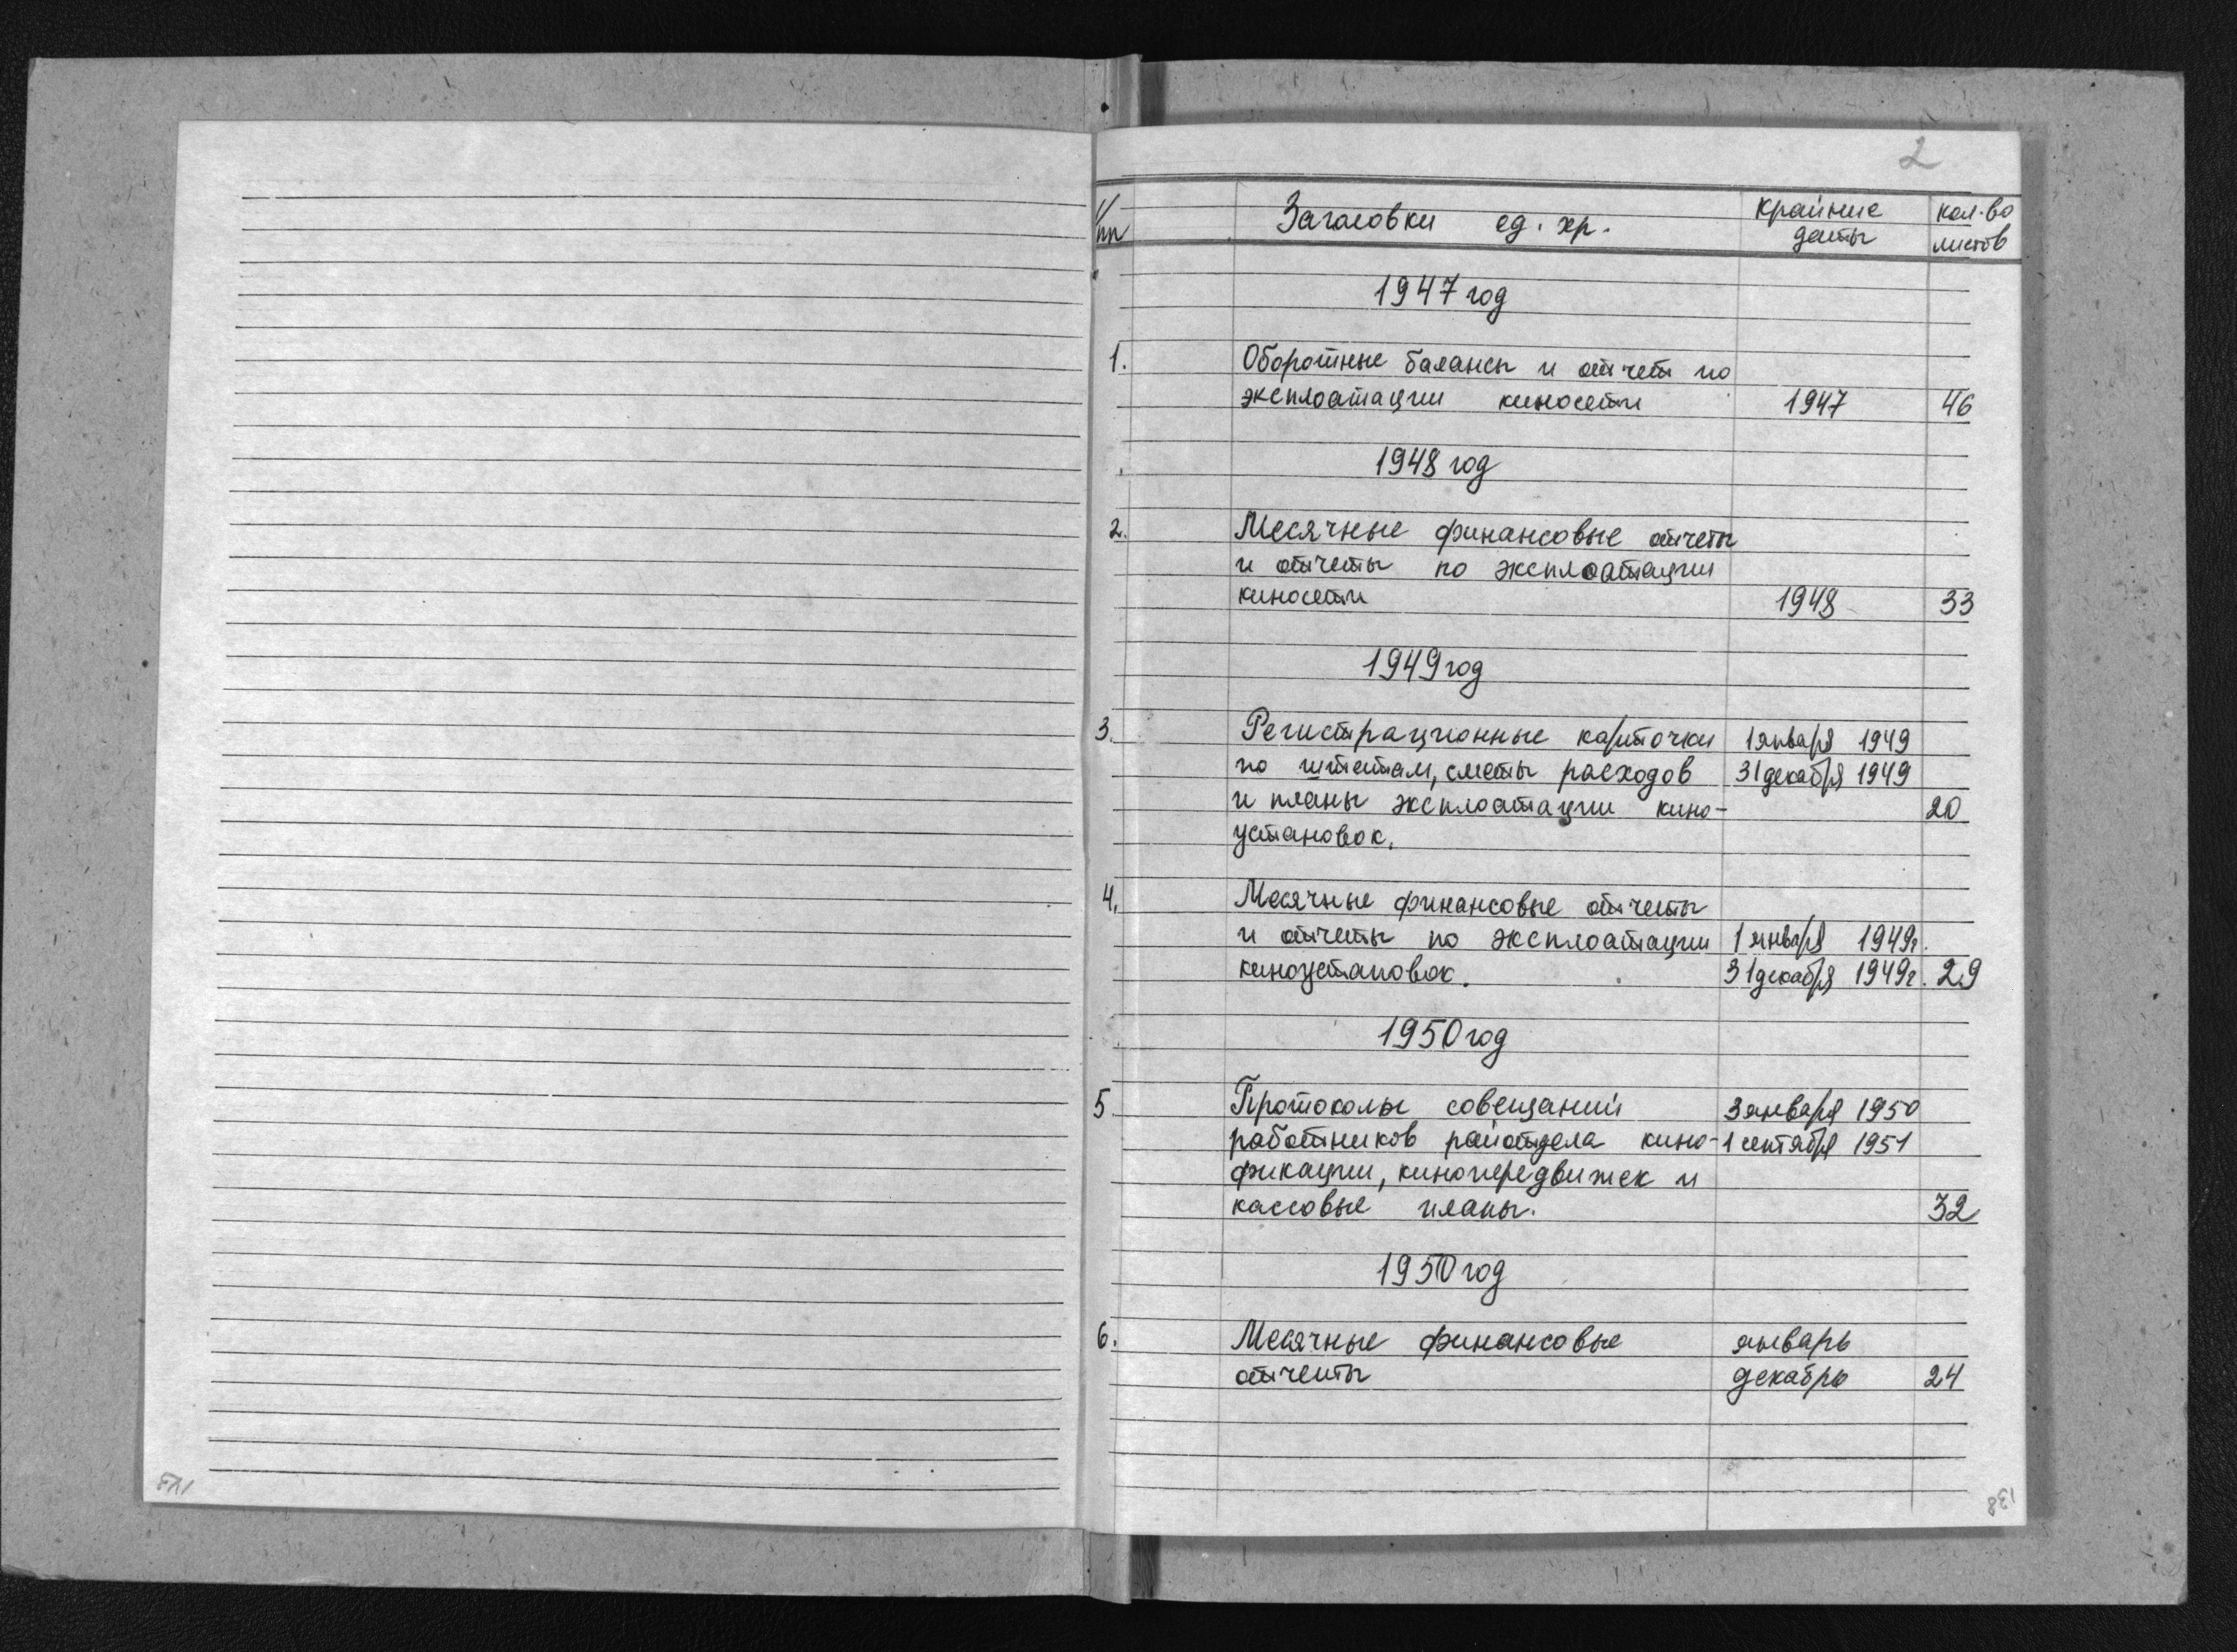 2
№ Заголовки ед. хр. Крайние кол-во
пп даты листов
1947 год
1. Оборотные балансы и отчет по
эксплоатации киносети 1947 46
1948 год
2. Месячные финансовые отчеты
и отчеты по эксплоатации
киносети 1948 33
1949 год
3. Регистрационные карточки 1 января 1949
по штатам, сметы расходов 31 декабря 1949
и планы эксплоатации кино- 20
установок.
4. Месячные финансовые отчеты
и отчеты по эксплоатации 1 января 1949г.
киноустановок. 31 декабря 1949г. 29
1950 год
5 Протоколы совещаний 3 января 1950
работников райотдела кино- 1 сентября 1951
фикации, кинопередвижек и
кассовые планы. 32
1950 год
6. Месячные финансовые январь
отчеты декабрь 24
138